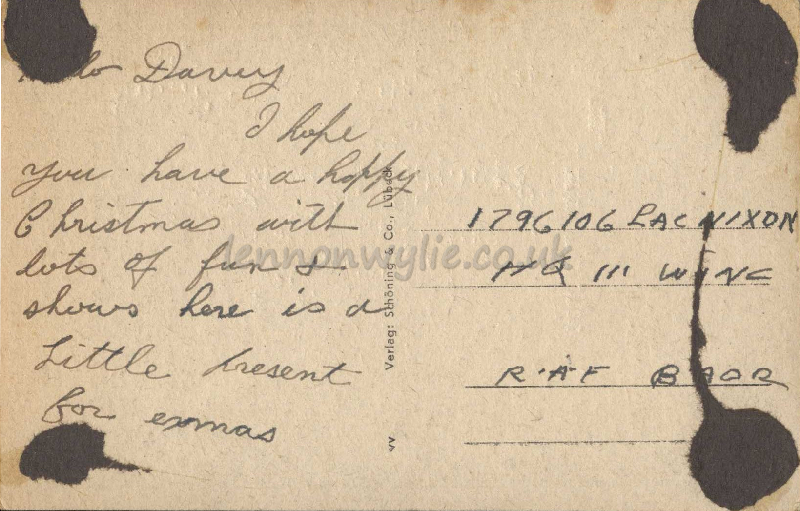 Hello Davey
I hope
you have a happy
Christmas with
lots of fun &
shows here is a
Little present
for exmas
Verlag: Schöning & Co., Lübeck
1796106 LAC NIXON
HQ 111 WING
R.A.F BAOR
lennonwylie.co.uk